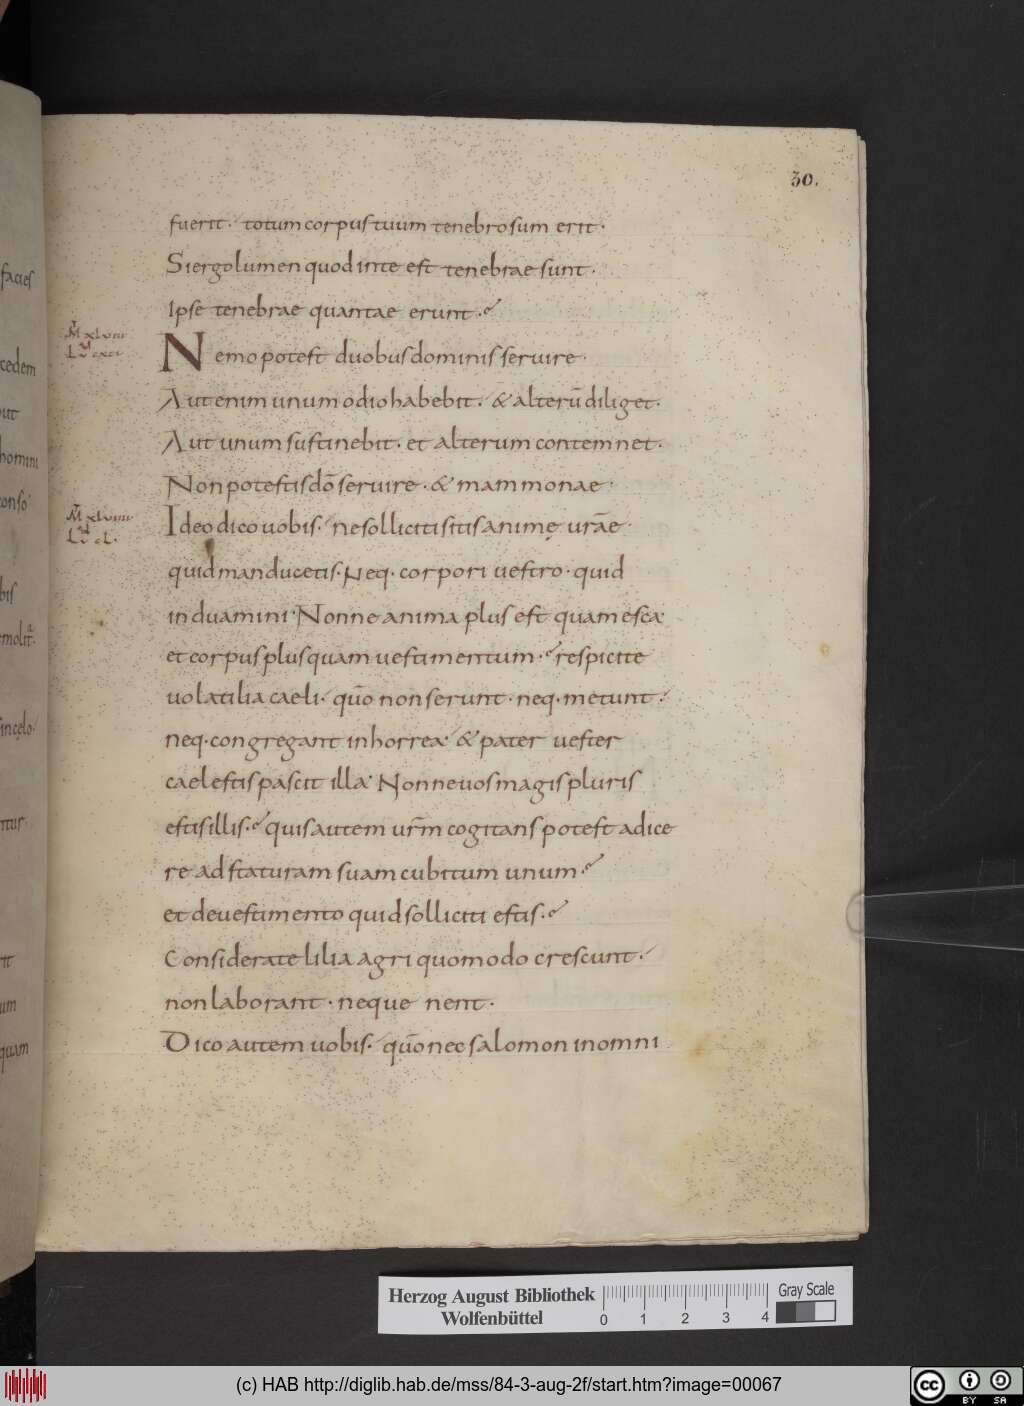 30.
facies
cedem
homini
bis
quam
fuerit· totum corpus tuum tenebrosum erit·
Si ergo lumen quod inte est tenebrae sunt·
Ipse tenebrae quantae erunt·
Nemo potest duobus dominis seruire·
Aut enim unum odio habebit· & alterū diliget·
Aut unum sustinebit· et alterum contemnet·
Non potestis dō seruire· & mammonae·
Ideo dico uobis· ne solliciti sitis animę urāe·
quid manducetis· Neq· corpori uestro· quid
induamini· Nonne anima plus est quam esca·
et corpus plus quam uestimentum· respicite
uolatilia caeli· quō non serunt· neq· metunt·
neq· congregant in horrea· & pater uester
caelestis pascit illa· Nonne uos magis pluris
estis illis· quis autem urm̄ cogitans potest adice
re ad staturam suam cubitum unum·
et de uestimento quid solliciti estis·
Considerate lilia agri quomodo crescunt·
non laborant· neque nent·
Dico autem uobis· quō nec salomon in omni
Herzog August Bibliothek
Wolfenbüttel
0 1 2 3 4
Gray Scale
(c) HAB http://diglib.hab.de/mss/84-3-aug-2f/start.htm?image=00067
cc BY SA